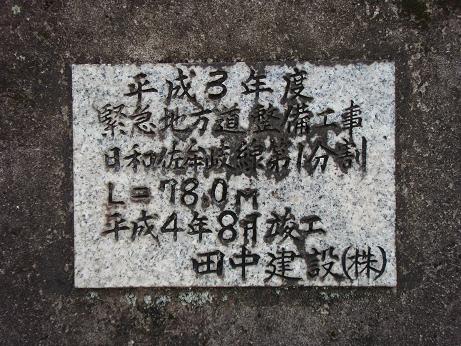 平成3年度
緊急地方道整備工事
日和佐牟岐線第1分割
L=78.0m
平成4年8月竣工
田中建設(株)